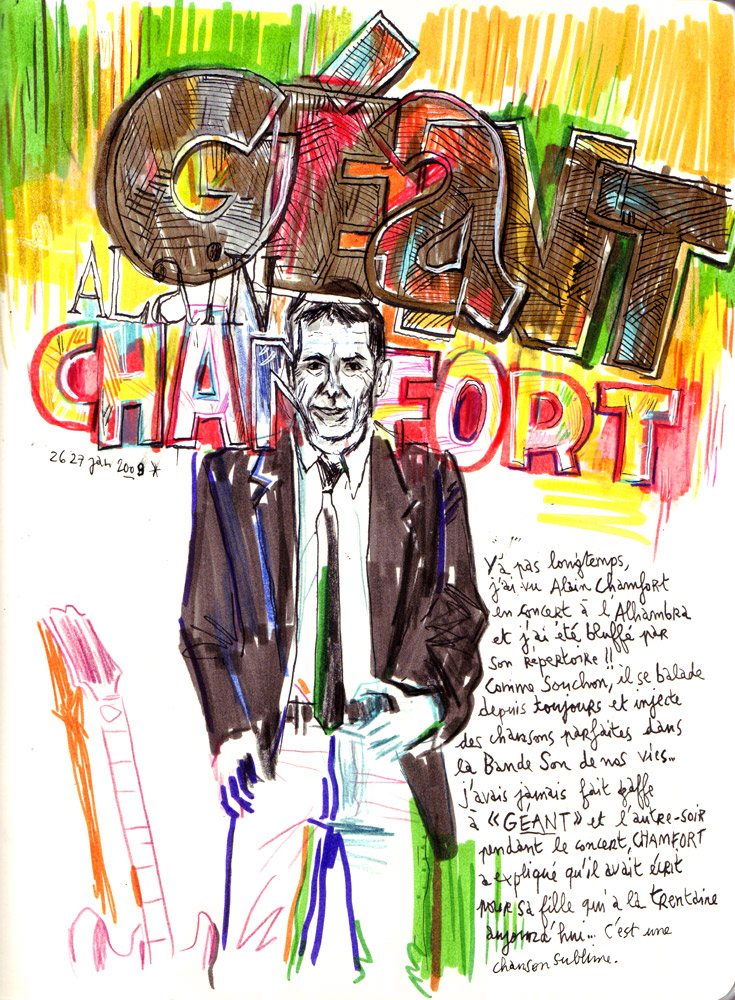 GÉaNT
ALaiN
CHAMFORT
26 27 jan 2009 *
Y'a pas longtemps,
j'ai vu Alain Chamfort
en concert à l'Alhambra
et j'ai été bluffé par
son répertoire !!
Comme Souchon, il se balade
depuis toujours et injecte
des chansons parfaites dans
la Bande Son de nos vies...
j'avais jamais fait gaffe
à «GÉANT» et l'autre-soir
pendant le concert, CHAMFORT
a expliqué qu'il avait écrit
pour sa fille qui a la trentaine
aujourd'hui... C'est une
chanson sublime.